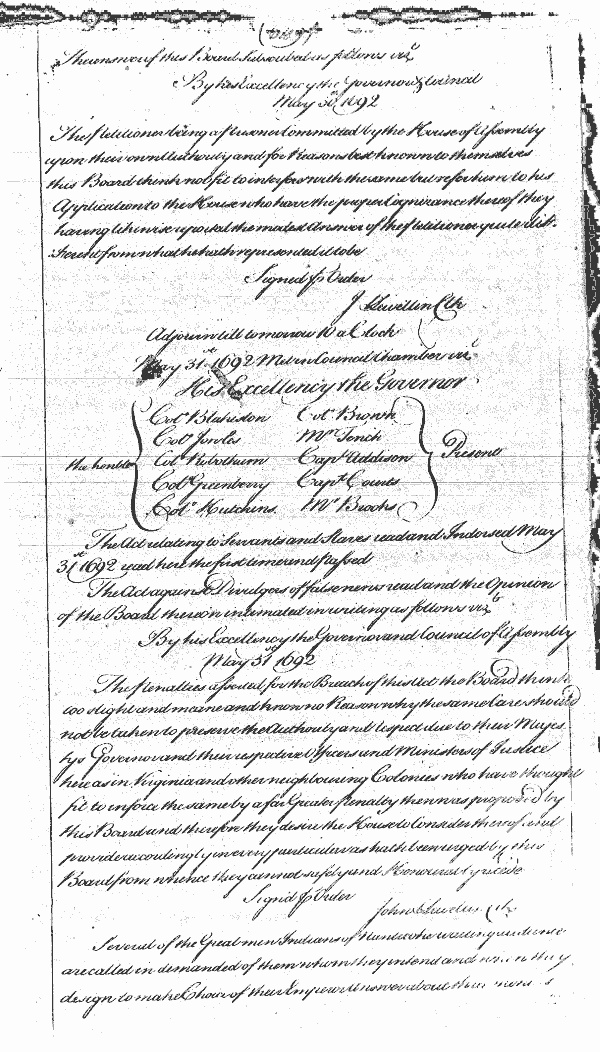 The answer of this Board Subscribed as follows viz.t
By his Excellency the Governor & Councel
May 30th 1692
The Petitioner being a Prisoner Committed by the House of Assembly
upon their own Authority and for Reasons best known to themselves
this Board think not fit to interfere with the same but refer him to his
Application to the House who have the proper Cognizance thereof they
having likewise reported the modest Answer of the Petitioner quite dif-
ferent from what he hath represented it to be
Signed p Order
J Llewellin Clk
Adjourn till tomorrow 10 a Clock
May 31st 1692 Met in Council Chamber viz.t
His Excellency the Governor
Col.o Blakiston Col.o Brown
Col.o Jowles Mr Tench
the honble Col.o Robotham Capt Addison Present
Col.o Greenberry Capt Courts
Col.o Hutchins Mr Brooks
The Act relating to Servants and Slaves read and Indorsed May
31st 1692 read here the first time and Passed
The Act against Divulgers of false news read and the Opinion
of the Board thereon intimated in writing as follows viz.t
By his Excellency the Governor and Council of Assembly
May 31st 1692
The Penalties assessed for the Breach of this Act the Board think
too slight and meane and know no Reason why the same Care should
not be taken to preserve the Authority and respect due to their Majes
tys Governor and their respective Officers and Ministers of Justice
here as in Virginia and other neighbouring Colonies who have thought
fit to enforce the same by a far Greater penalty then was proposed by
this Board and therefore they desire the House to Consider thereof and
provide accordingly in every particular as hath been urged by this
Board from whence they cannot safely and Honourably recede
Signed p Order
John Llewellin Clk
Several of the Great men Indians of Nanticoke waiting
are called in demanded of them whom they intend and when they
design to make Choice of their Emperor Answer about their